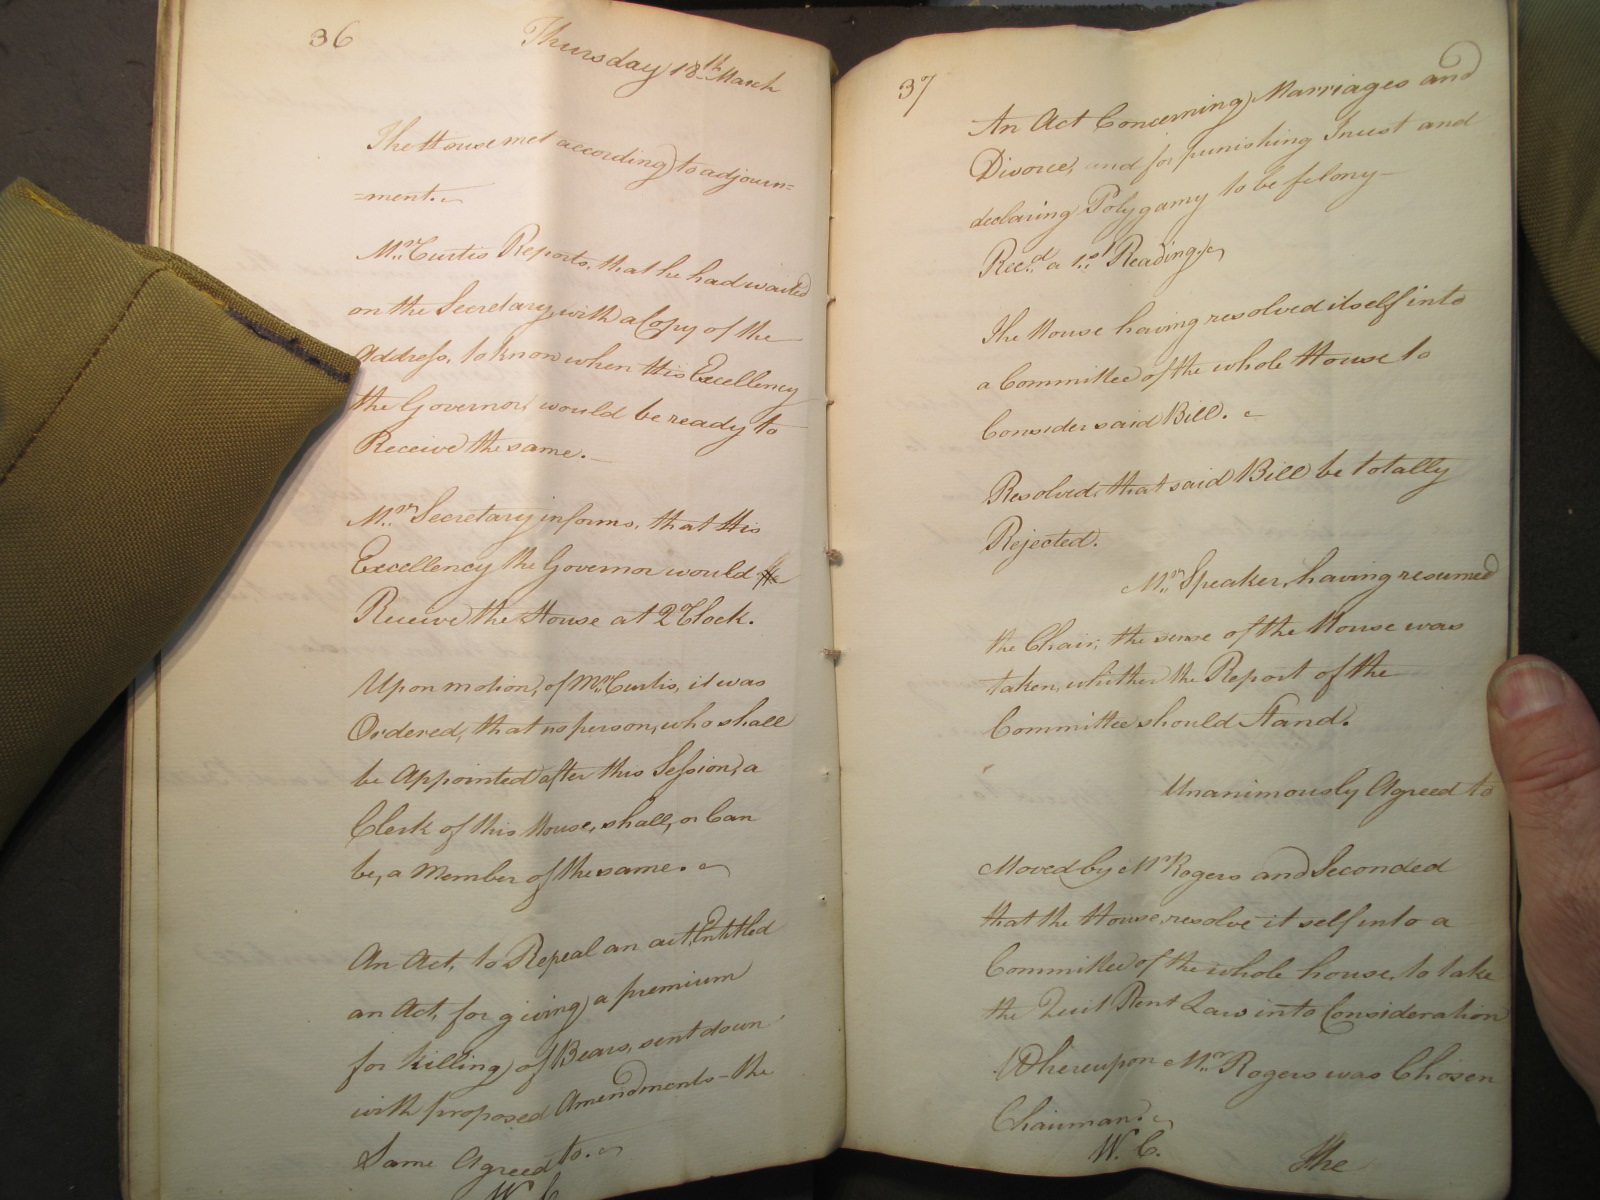 36
Thursday 18th March
The House met according to adjourn=
=ment.
Mr. Curtis Reports, that he had waited
on the Secretary, with a Copy of the
Address, to know when His Excellency
the Governor would be ready to
Receive the same.
Mr. Secretary informs, that His
Excellency the Governor would
Receive the House at 2 Clock.
Upon motion, of Mr. Curtis, it was
Ordered, that no person, who shall
be Appointed after this Session, a
Clerk of this House, shall, or Can
be, a Member of the same.
An Act, to Repeal an act, Entitled
an Act, for giving a premium
for killing of Bears, sent down
with proposed Amendments - the
Same Agreed to.
W. C.
37
An Act Concerning Marriages and
Divorce, and for punishing Incest and
declaring Polygamy to be felony -
Recd. a 1st Reading.
The House having resolved itself into
a Committee of the whole House to
Consider said Bill.
Resolved, that said Bill be totally
Rejected.
Mr. Speaker, having resumed
the Chair, the sense of the House was
taken, whether the Report of the
Committee should Stand.
Unanimously Agreed to
Moved by Mr Rogers and Seconded
that the House, resolve it self into a
Committee of the whole house, to take
the Quit Rent Law into Consideration
Whereupon Mr. Rogers was Chosen
Chairman.
W. C.
The